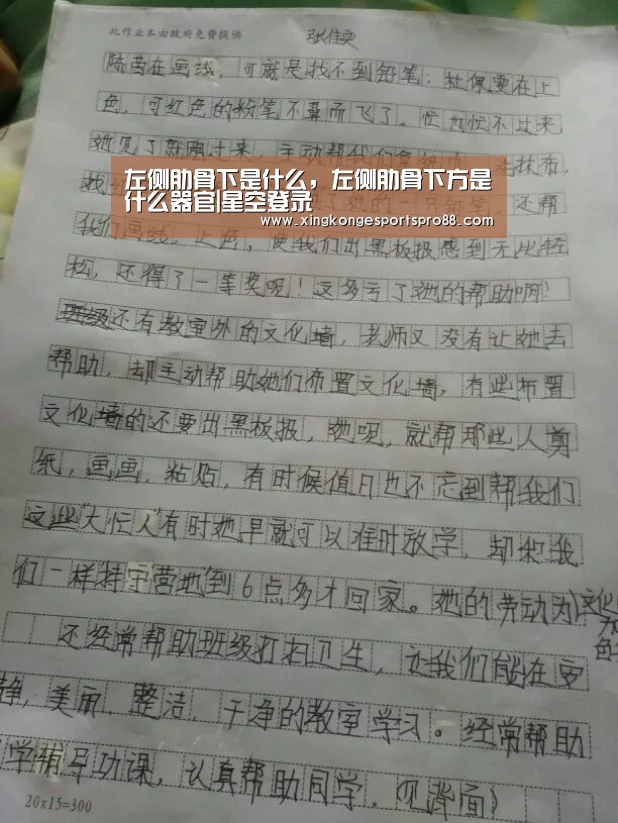 此作业本由政府免费提供
陈茜在画线，可就是找不到铅笔；杜保雯在上
色，可红色的粉笔不翼而飞了。忙也忙不过来，
她见了就跑过来，主动帮我们拿 抹布，
左侧肋骨下是什么，左侧肋骨下方是
什么器官|星空登录
www.xingkongesportspro88.com
找 了她的一只铅笔，还帮
我们画线，上色，使我们出黑板报感到无比轻
松，还得了一等奖呢！这多亏了她的帮助啊！
班级还有教室外的文化墙，老师又没有让她去
帮助，却主动帮助她们布置文化墙，有些布置
文化墙的还要出黑板报，她呢，就帮那些人剪
纸，画画，粘贴，有时候值日也不忘到帮我们
这些“大忙人”有时她早就可以准时放学，却和我
们一样持守营地到6点多才回家。她的劳动为
文化
还经常帮助班级打扫卫生，让我们能在安
静，美丽，整洁，干净的教室学习。经常帮助
学辅导功课，认真帮助同学，（见背面）
20x15=300